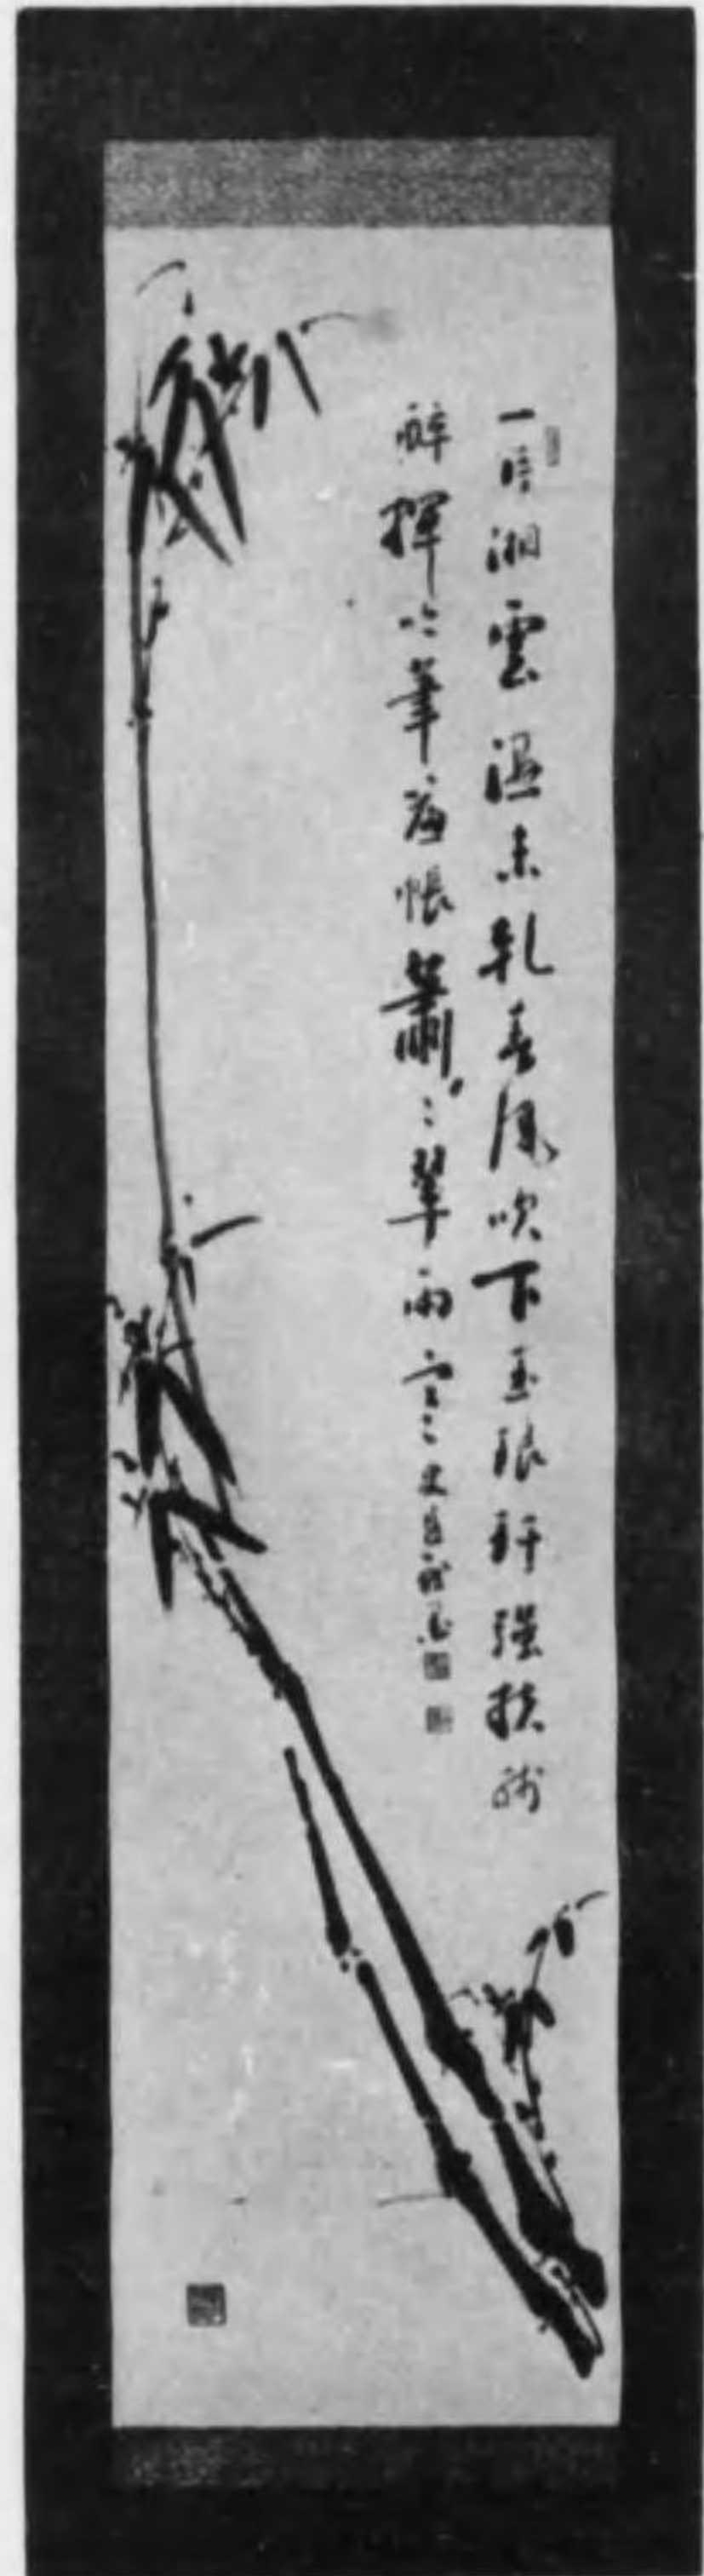 一片湘雲湿未乾春風吹下玉琅玕強扶残
酔揮吟筆簾帳蕭〻翠雨寒